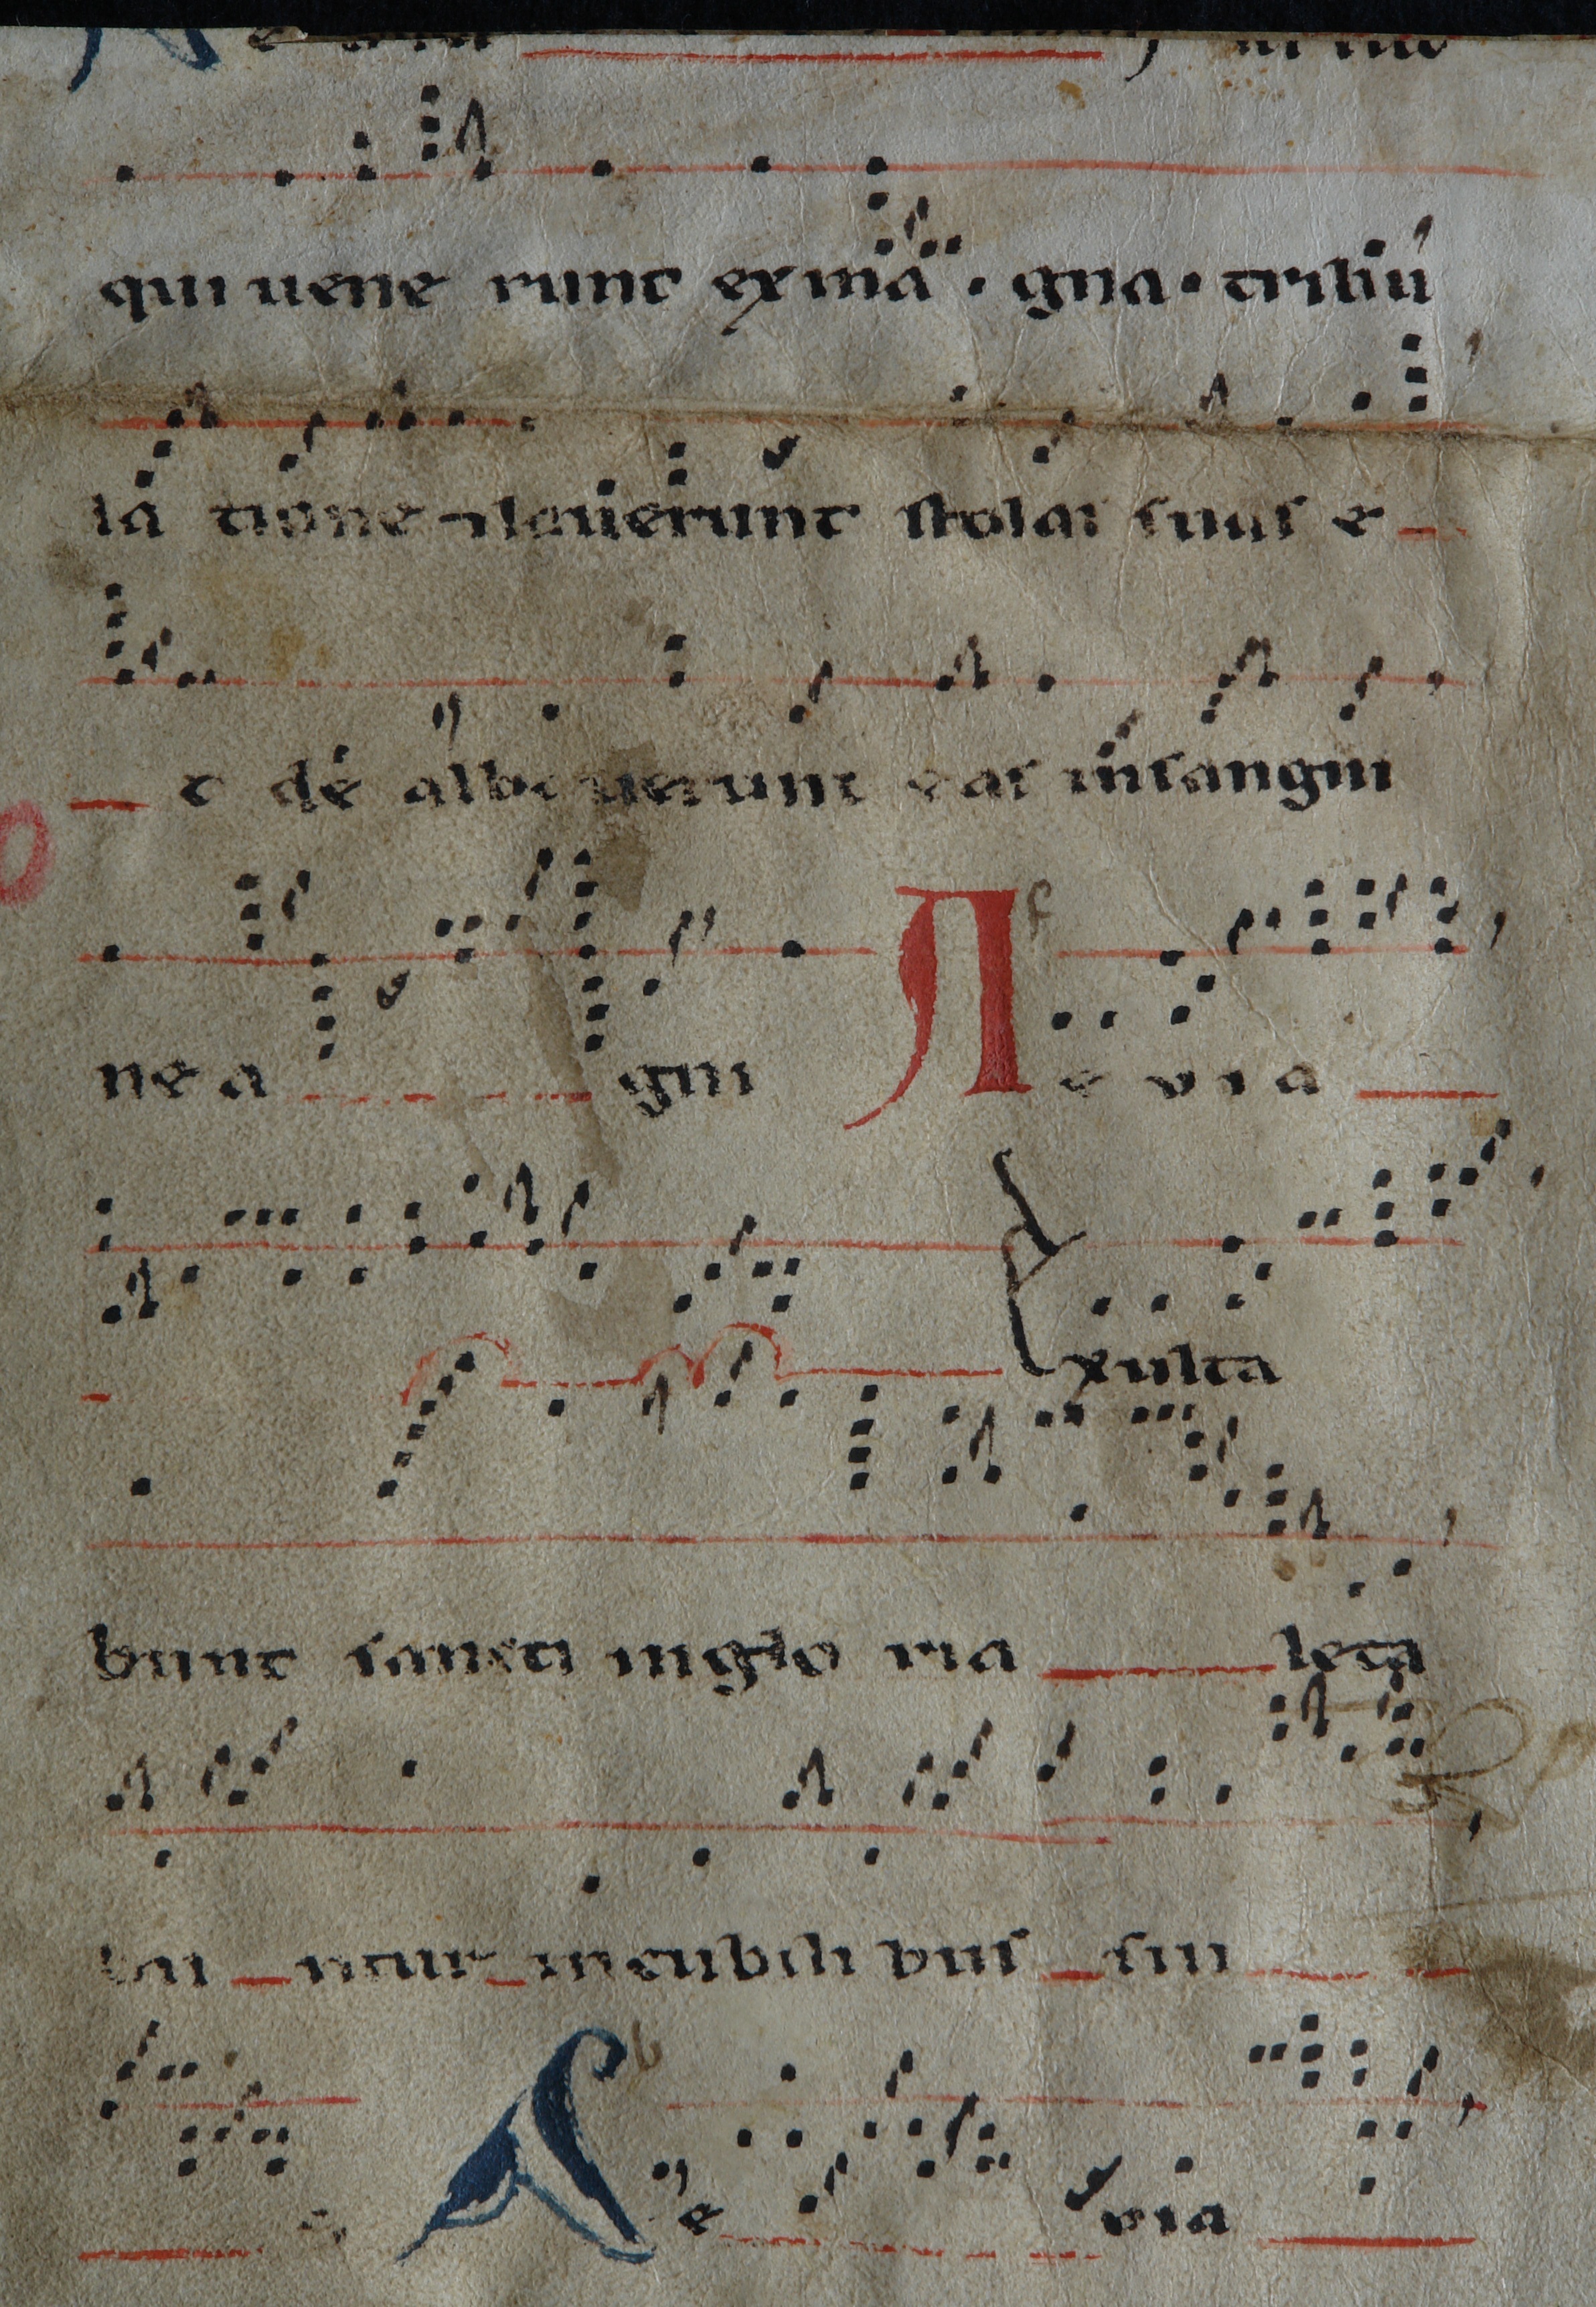 qui uene runt ex ma · gna · tribu
la tione ⁊ lauerunt stolas suas e
t de alba uerunt eas in sangui
ne a gni A e v i a
Exulta
bunt sancti in glo ria leta
bu ntur in cubili bus sui
s A e via